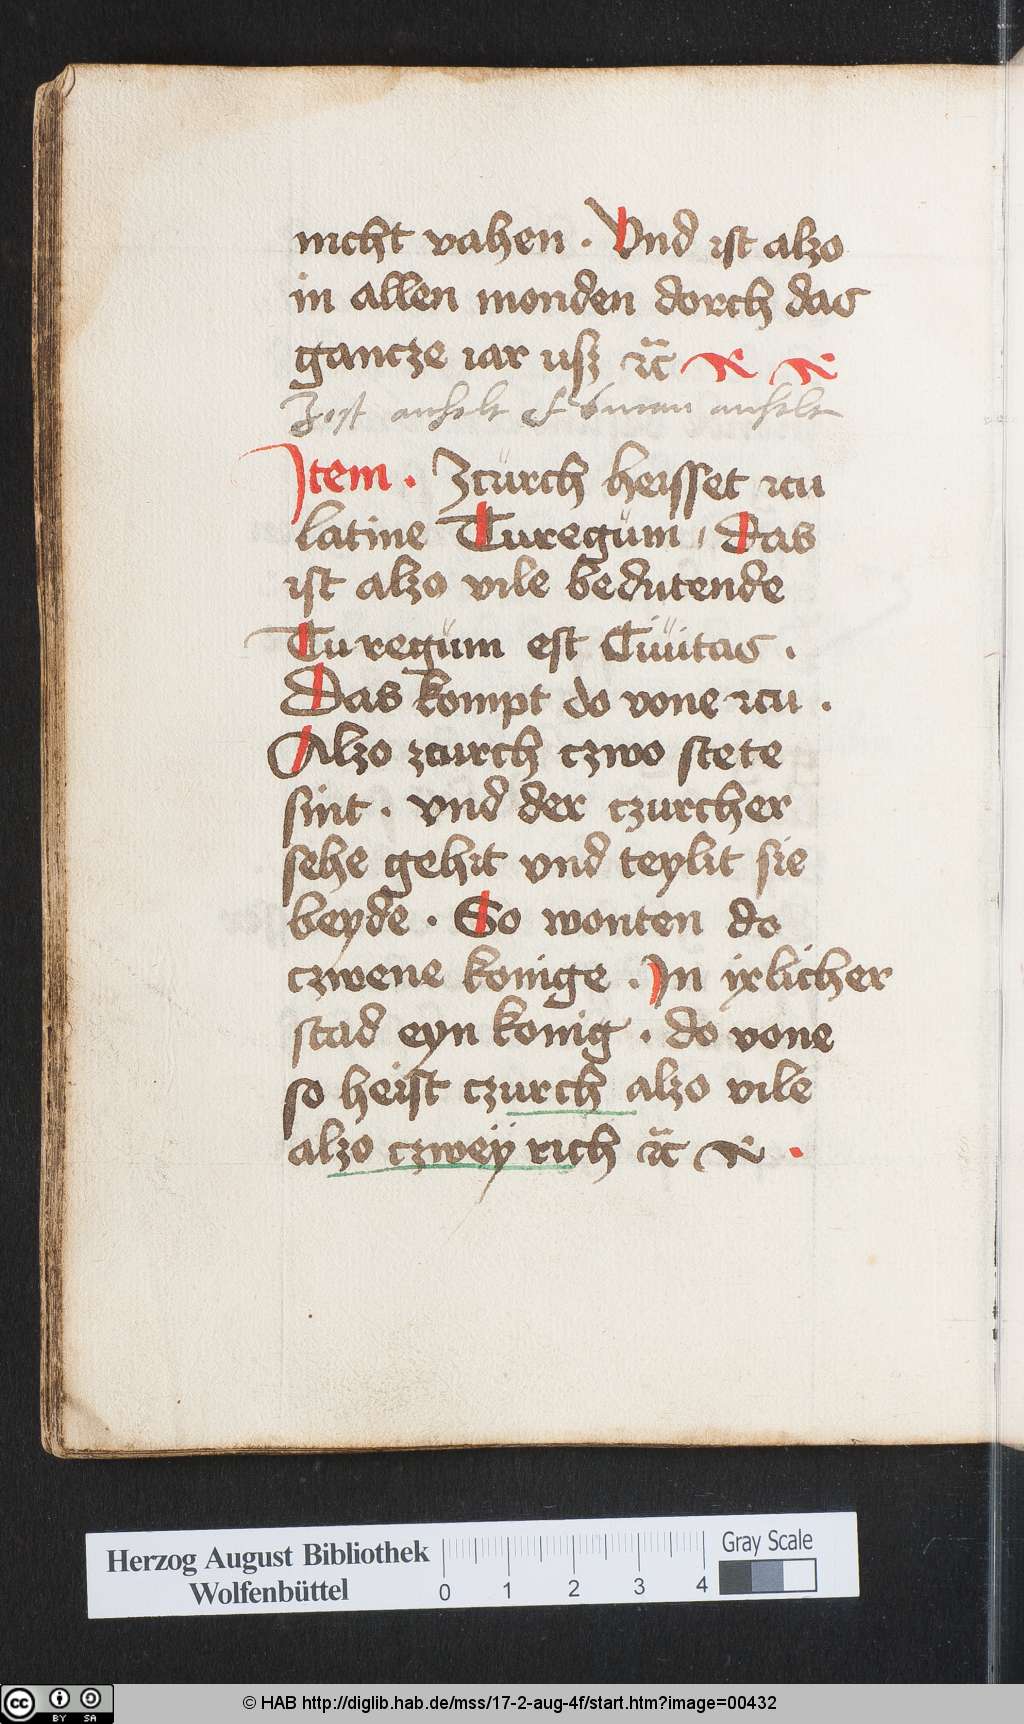 nicht vahen . Vnd ist alzo
in allen monden dorch das
gancze iar usz ꝛc̈
Jost anhelt anhelt
Item . Zcürch heisset zcu
latine Turegüm , das
ist alzo vile bedutende
Turegüm est Ciüitas .
Das kompt do vone zcu .
Alzo zcurch czwo stete
sint . vnd der czurcher
sehe gehit vnd teylit sie
beyde . So wonten do
czwene konige . In yxlicher
stad eyn konig . do vone
so heist czurch alzo vile
alzo czweÿ rich ꝛc̈ .
Herzog August Bibliothek
Wolfenbüttel
0 1 2 3 4
Gray Scale
cc BY SA
© HAB http://diglib.hab.de/mss/17-2-aug-4f/start.htm?image=00432